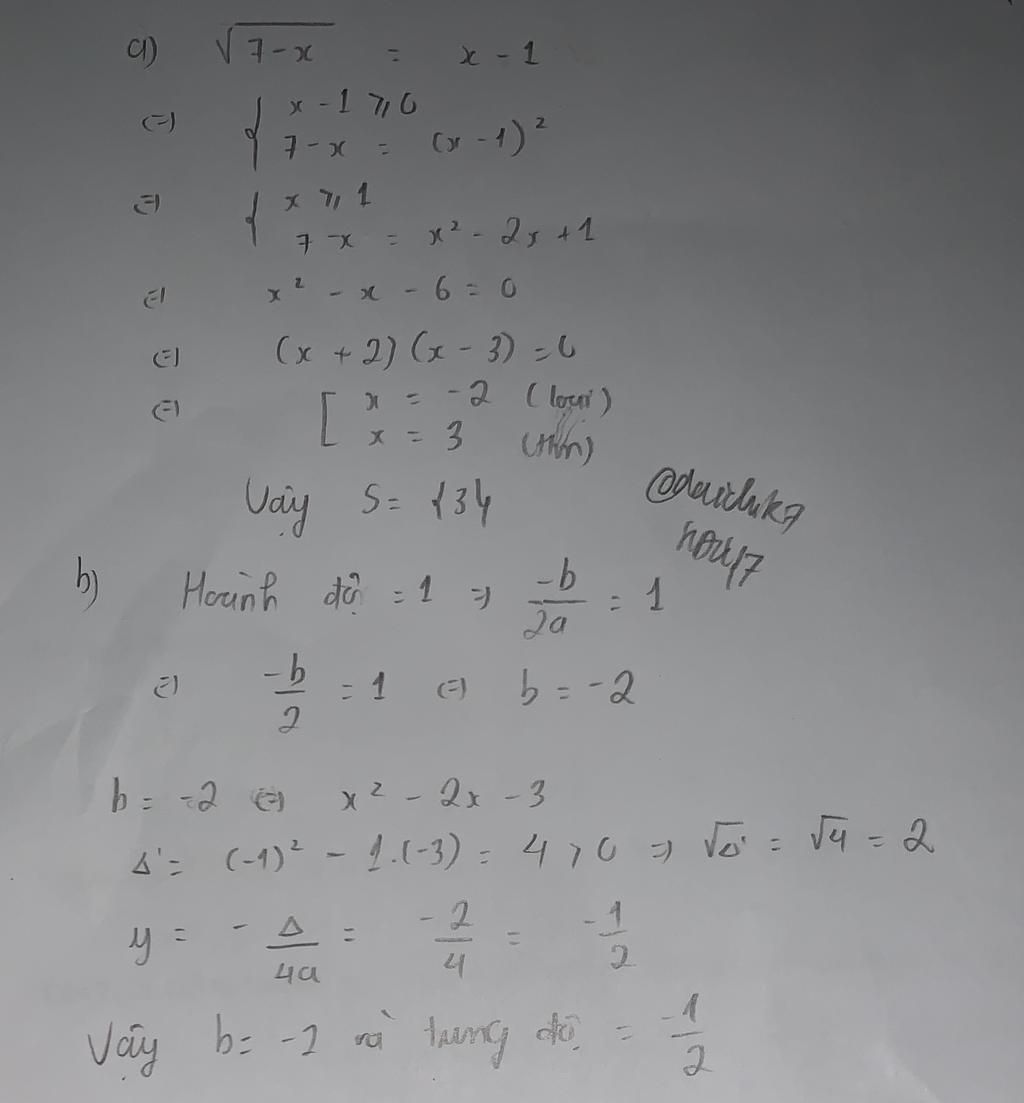 a) √(7-x) = x - 1
⇔ { x - 1 ⩾ 0
7-x = (x-1)²
⇔ { x ⩾ 1
7-x = x² - 2x + 1
⇔ x² - x - 6 = 0
⇔ (x + 2) (x - 3) = 0
⇔ [ x = -2 (loại)
x = 3 (thỏa)
Vậy S = {3}
b) Hoành độ = 1 ⇒ -b/2a = 1
⇔ -b/2 = 1 ⇔ b = -2
b = -2 ⇔ x² - 2x - 3
Δ' = (-1)² - 1.(-3) = 4 > 0 ⇒ √Δ' = √4 = 2
y = - Δ/4a = -2/4 = -1/2
Vậy b = -2 và tung độ = -1/2